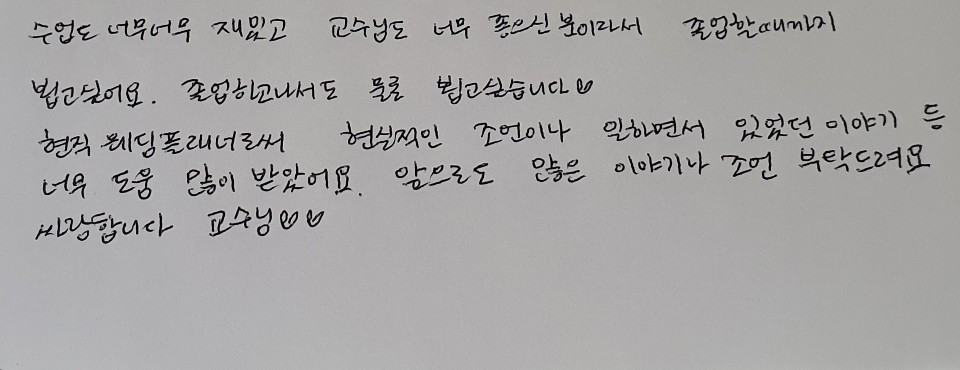 수업도 너무너무 재밌고 교수님도 너무 좋으신 분이라서 졸업할때까지
뵙고싶어요. 졸업하고나서도 물론 뵙고싶습니다♡
현직 웨딩플래너로써 현실적인 조언이나 일하면서 있었던 이야기 등
너무 도움 많이 받았어요. 앞으로도 많은 이야기나 조언 부탁드려요
사랑합니다 교수님♡♡